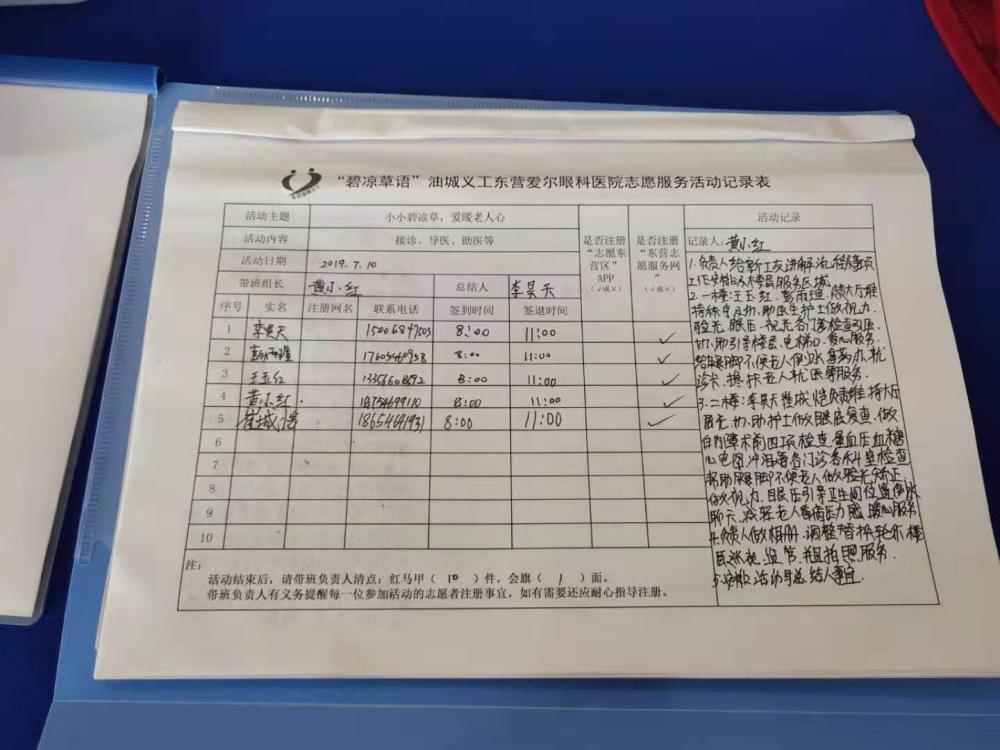 “碧凉草语”油城义工东营爱尔眼科医院志愿服务活动记录表
活动主题 小小碧凉草，爱暖老人心
活动内容 接诊、导医、助医等
活动日期 2019.7.10
是否注册“志愿东营区”APP（√或×）
是否注册“东营志愿服务网”（√或×）
带班组长 黄小红 总结人 李昊天
序号 实名 注册网名 联系电话 签到时间 签退时间
1 李昊天 15006847503 8:00 11:00 ✓
2 8:00 11:00 ✓
3 王玉红 8:00 11:00 ✓
4 黄小红 18754699110 8:00 11:00 ✓
5 崔城恺 18654691931 8:00 11:00 ✓
6
7
8
9
10
注：
活动结束后，请带班负责人清点：红马甲（10）件，会旗（1）面。
带班负责人有义务提醒每一位参加活动的志愿者注册事宜，如有需要还应耐心指导注册。
活动记录
记录人：黄小红
1.负责人给新工友讲解流程及事项
工作安排以及楼层服务区域
2.一楼：王玉红、负责大厅维
持秩序及协助医生护士做视力
验光、眼压、视光各门诊检查引医
协助引导楼层、电梯口、爱心服务
给腿脚不便老人倒水拿药办就
诊卡、搀扶老人就医等服务.
3.二楼：李昊天崔城恺负责维持大厅
验光、协助护士做眼底复查、做
白内障术前四项检查、量血压血糖
心电图冲泪道各门诊各科室检查
帮助腿脚不便老人做验光矫正
做视力、目眼压引导卫生间位置倒水
聊天、减轻老人看病压力感 暖心服务
4.负责人做相册、调整替换轮休楼
层巡视、监管、并且拍照服务.
5.安排活动总结人事宜.